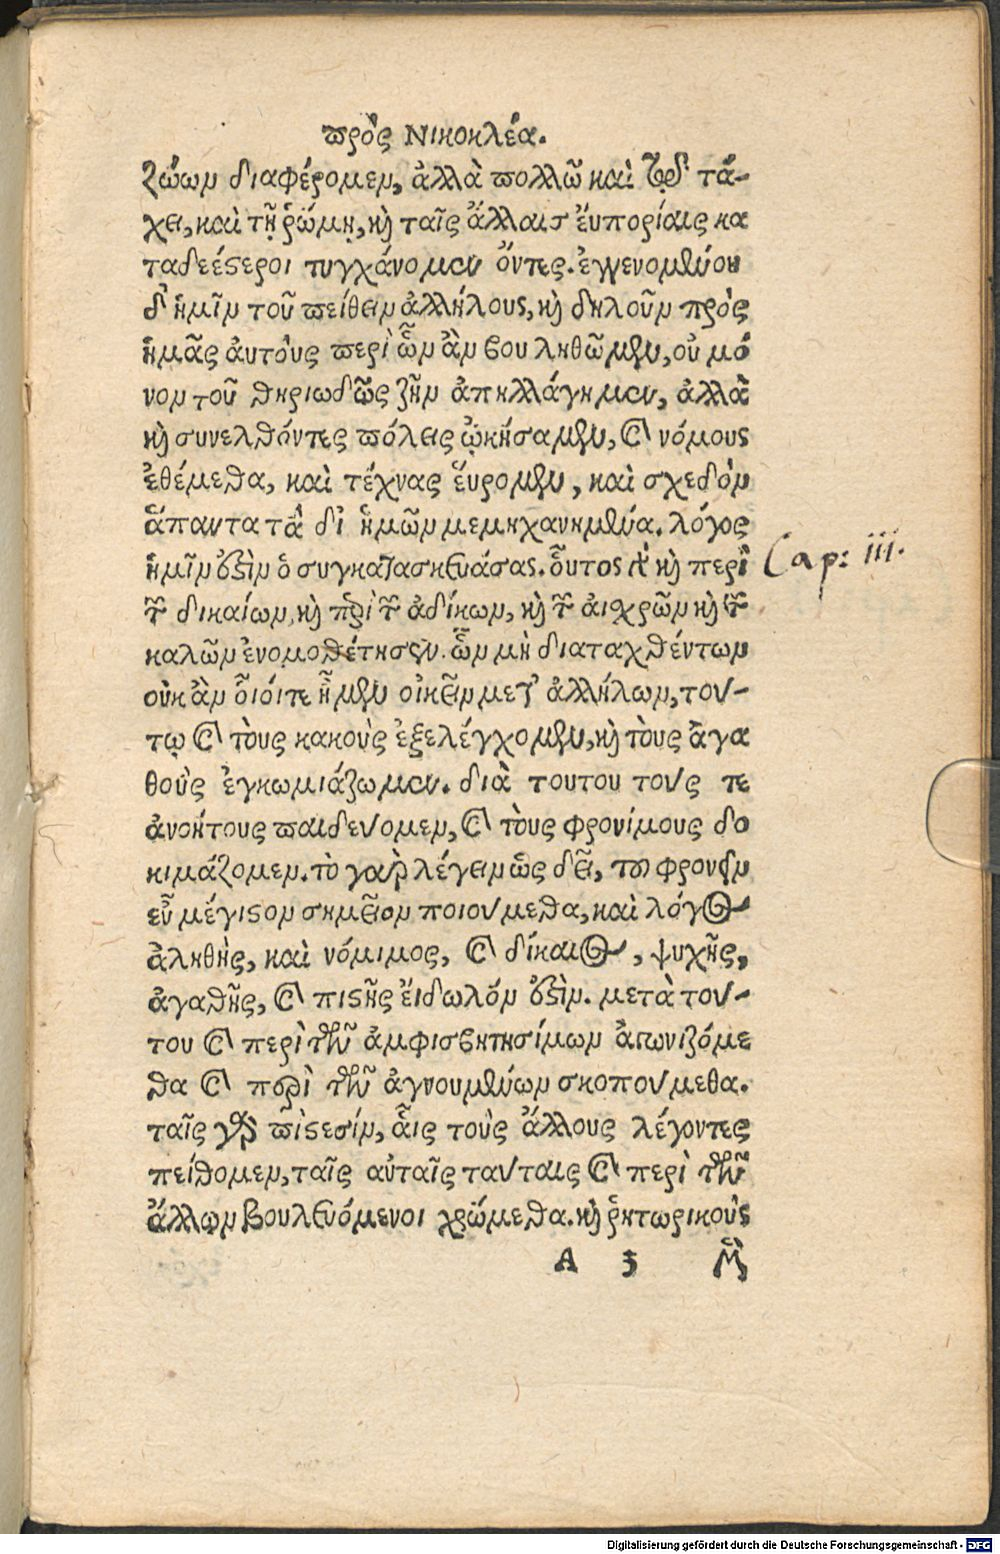 πρὸς Νικοκλέα.
ζώων διαφέρομεν, ἀλλὰ πολλῶ καὶ τῷ τά-
χει, καὶ τῇ ῥώμῃ, καὶ ταῖς ἄλλαις ἐυπορίαις κα
ταδεέςεροι τυγχάνομεν ὄντες. ἐγγενομένου
δ' ἡμῖν τοῦ πείθειν ἀλλήλους, καὶ δηλοῦν πρὸς
ἡμᾶς ἀυτοὺς περὶ ὧν ἂν βουληθῶμεν, οὐ μό
νον τοῦ θηριωδῶς ζῆν ἀπηλλάγημεν, ἀλλὰ
καὶ συνελθόντες πόλεις ᾠκήσαμεν, καὶ νόμους
ἐθέμεθα, καὶ τέχνας ἕυρομεν, καὶ σχεδὸν
ἅπαντα τὰ δι ἡμῶν μεμηχανημένα. λόγος
ἡμῖν ἐςὶν ὁ συγκατασκευάσας. οὗτος γὰρ καὶ περὶ
τῶν δικαίων, καὶ περὶ τῶν ἀδίκων, καὶ τῶν αιχρῶν καὶ τῶν
καλῶν ἐνομοθέτησεν. ὧν μὴ διαταχθέντων
οὐκ ἂν οἷοίτε ἦμεν οἰκεῖν μετ' ἀλλήλων, του-
τῳ καὶ τοὺς κακοὺς ἐξελέγχομεν, καὶ τοὺς ἀγα
θοὺς ἐγκωμιάζωμεν. διὰ τουτου τους τε
ἀνοήτους παιδευομεν, καὶ τοὺς φρονίμους δο
κιμάζομεν. τὸ γὰρ λέγειν ὡς δεῖ, του φρονεῖν
εὖ μέγιςον σημεῖον ποιουμεθα, καὶ λόγος
ἀληθὴς, καὶ νόμιμος, καὶ δίκαιος, ψυχῆς,
ἀγαθῆς, καὶ πιςῆς ἔιδωλόν ἐςὶν. μετὰ του-
του καὶ περὶ τῶν ἀμφισβητησίμων ἀγωνιζόμε
θα καὶ περὶ τῶν ἀγνουμένων σκοπουμεθα.
ταῖς γὰρ πίςεσίν, αἷς τοὺς ἄλλους λέγοντες
πείθομεν, ταῖς αὐταῖς ταυταις καὶ περὶ τῶν
ἄλλων βουλευόμενοι χρώμεθα. καὶ ῥητωρικοὺς
A 3 μὲν
Cap: iii.
Digitalisierung gefördert durch die Deutsche Forschungsgemeinschaft - DFG